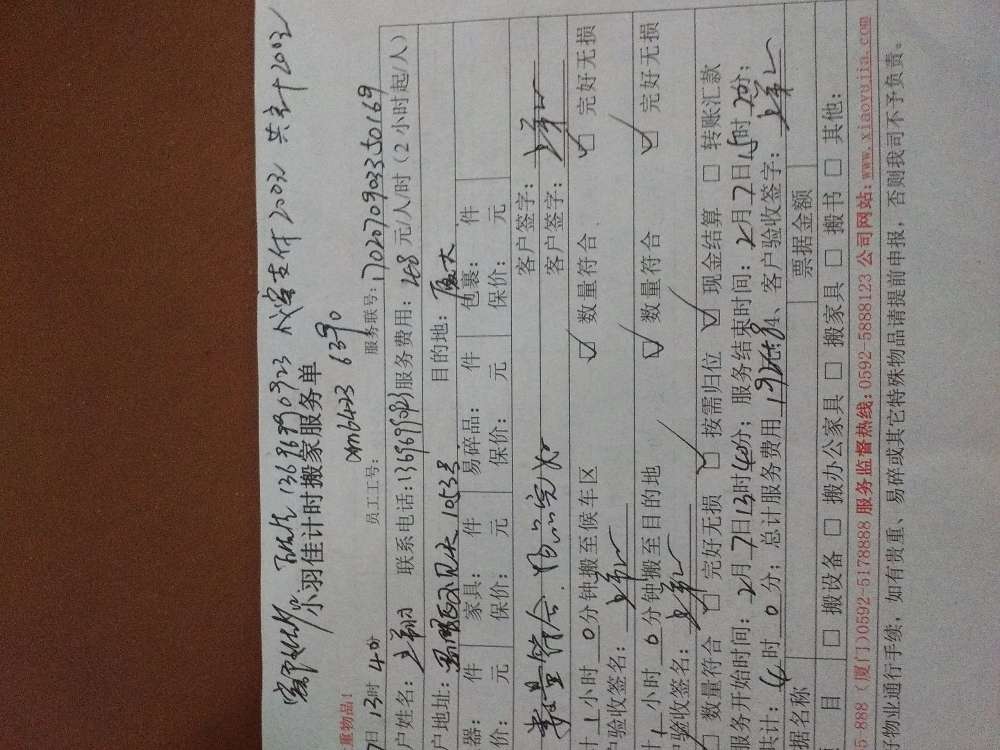 13696990923 微信支付200元 共计200元
小羽佳计时搬家服务单
重物品！
员工工号： xm6423 6390 服务联号：170207090335016 9
13时40分
户姓名： 联系电话： 服务费用： 元/人/时（2小时起/人）
户地址： 目的地：厦大
器： 件 家具： 件 易碎品： 件 包裹： 件
价： 元 保价： 元 保价： 元 保价： 元
数量符合 物品完好 客户签字：
计1小时0分钟搬至候车区 ☑ 数量符合 ☑ 完好无损 客户签字：
户验收签名：
计1小时0分钟搬至目的地 ☑ 数量符合 ☑ 完好无损
户验收签名：
□ 数量符合 □ 完好无损 ☑ 按需归位 ☑ 现金结算 □ 转账汇款
服务开始时间：2月7日13时40分；服务结束时间：2月7日15时20分；
共计：4时0分；总计服务费用 、客户验收签字：
据名称 票据金额
目 □ 搬设备 □ 搬办公家具 □ 搬家具 □ 搬书 □ 其他：
888（厦门）0592-5178888 服务监督热线：0592-5888123 公司网站：www.xiaoyujia.com
好物业通行手续，如有贵重、易碎或其它特殊物品请提前申报，否则我司不予负责。